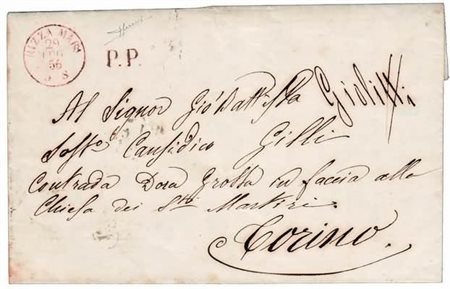 NIZZA MAR^a
29
56
S
P.P.
Al Signor Gio Battista Giolitti
Sost^o Causidico Gilli
Contrada Dora Grossa in faccia alla
Chiesa dei S^ti Martiri.
Torino.